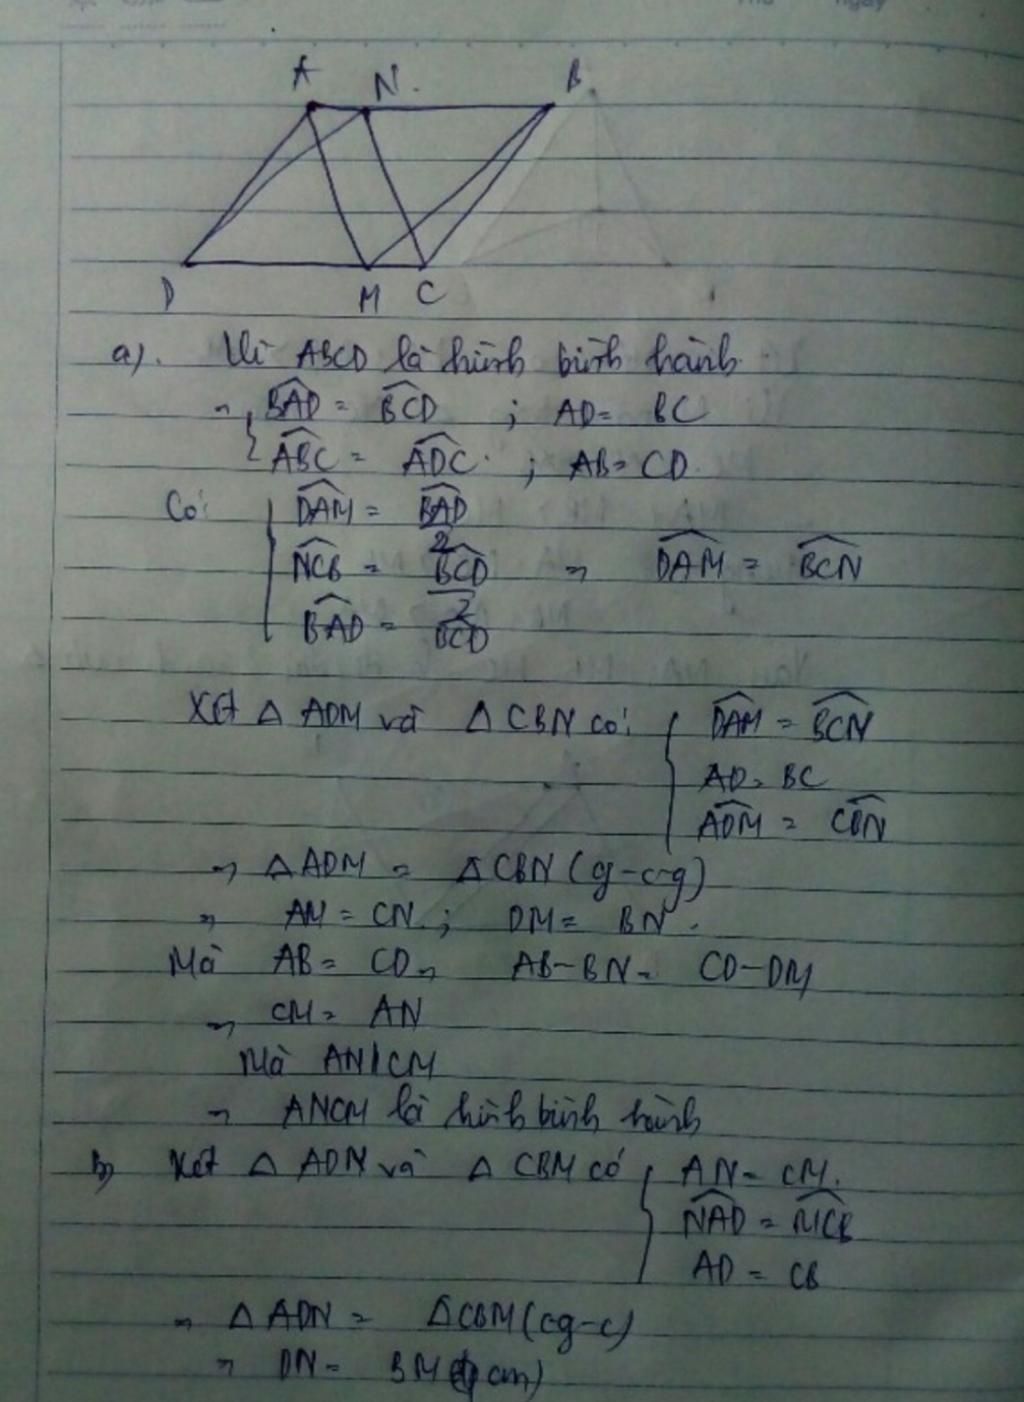 A N. B
D M C
a). Vì ABCD là hình bình hành
⇒ { BAD = BCD ; AD = BC
ABC = ADC ; AB = CD.
Có: DAM = BAD/2
NCB = BCD/2 ⇒ DAM = BCN
BAD = BCD
Xét Δ ADM và Δ CBN có: { DAM = BCN
AD = BC
ADM = CBN
⇒ Δ ADM = Δ CBN (g-c-g)
⇒ AM = CN ; DM = BN.
Mà AB = CD ⇒ AB - BN = CD - DM
⇒ CM = AN
Mà AN // CM
⇒ ANCM là hình bình hành
b) Xét Δ ADN và Δ CBM có { AN = CM.
NAD = MCB
AD = CB
⇒ Δ ADN = Δ CBM (c-g-c)
⇒ DN = BM